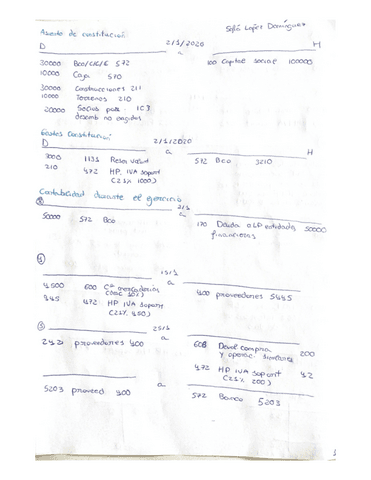 Asiento de constitución
Sofía López Domínguez
D 2/1/2020 H
a
30000 Bco/c/c/€ 572 100 Capital social 100000
10000 Caja 570
30000 Construcciones 211
10000 Terrenos 210
20000 Socios por 103
desemb no exigidos
Gastos Constitución
D 2/1/2020 H
a
3000 1131 Reserv volunt 572 Bco 3210
210 472 HP. IVA soport
(21% 1000)
Contabilidad durante el ejercicio
2/1
a
50000 572 Bco 170 Deuda a LP entidades 50000
financieras
15/1
4500 600 Cª mercaderías a 400 proveedores 5445
945 472 HP IVA soport
(21% 4500)
③ 25/1
242 proveedores 400 a 608 Devol compra 200
y operac. similares
472 HP IVA soport 42
(21% 200)
5203 proveed 400 a 572 Banco 5203